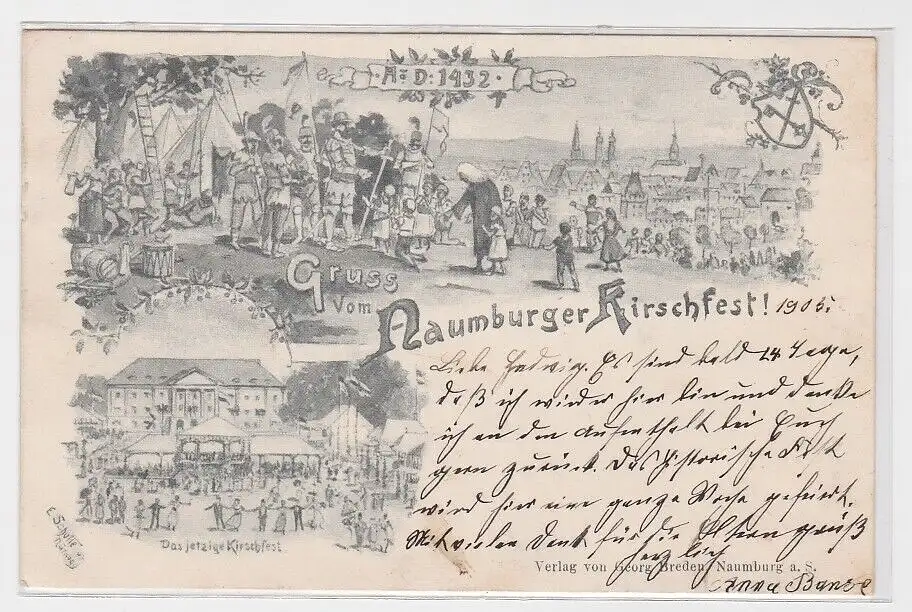 Ao D: 1432.
Gruss
vom
Naumburger Kirschfest! 1905.
Liebe Hedwig. Es sind bald 14 Tage,
daß ich wieder hier bin und denke
ich an den Aufenthalt bei Euch
gern zurück. Das historische Fest
wird hier eine ganze Woche gefeiert.
Mit vielen Dank für die Eltern grüßt
herzlich
Anna
Das jetzige Kirschfest
Verlag von Georg Breden, Naumburg a. S.